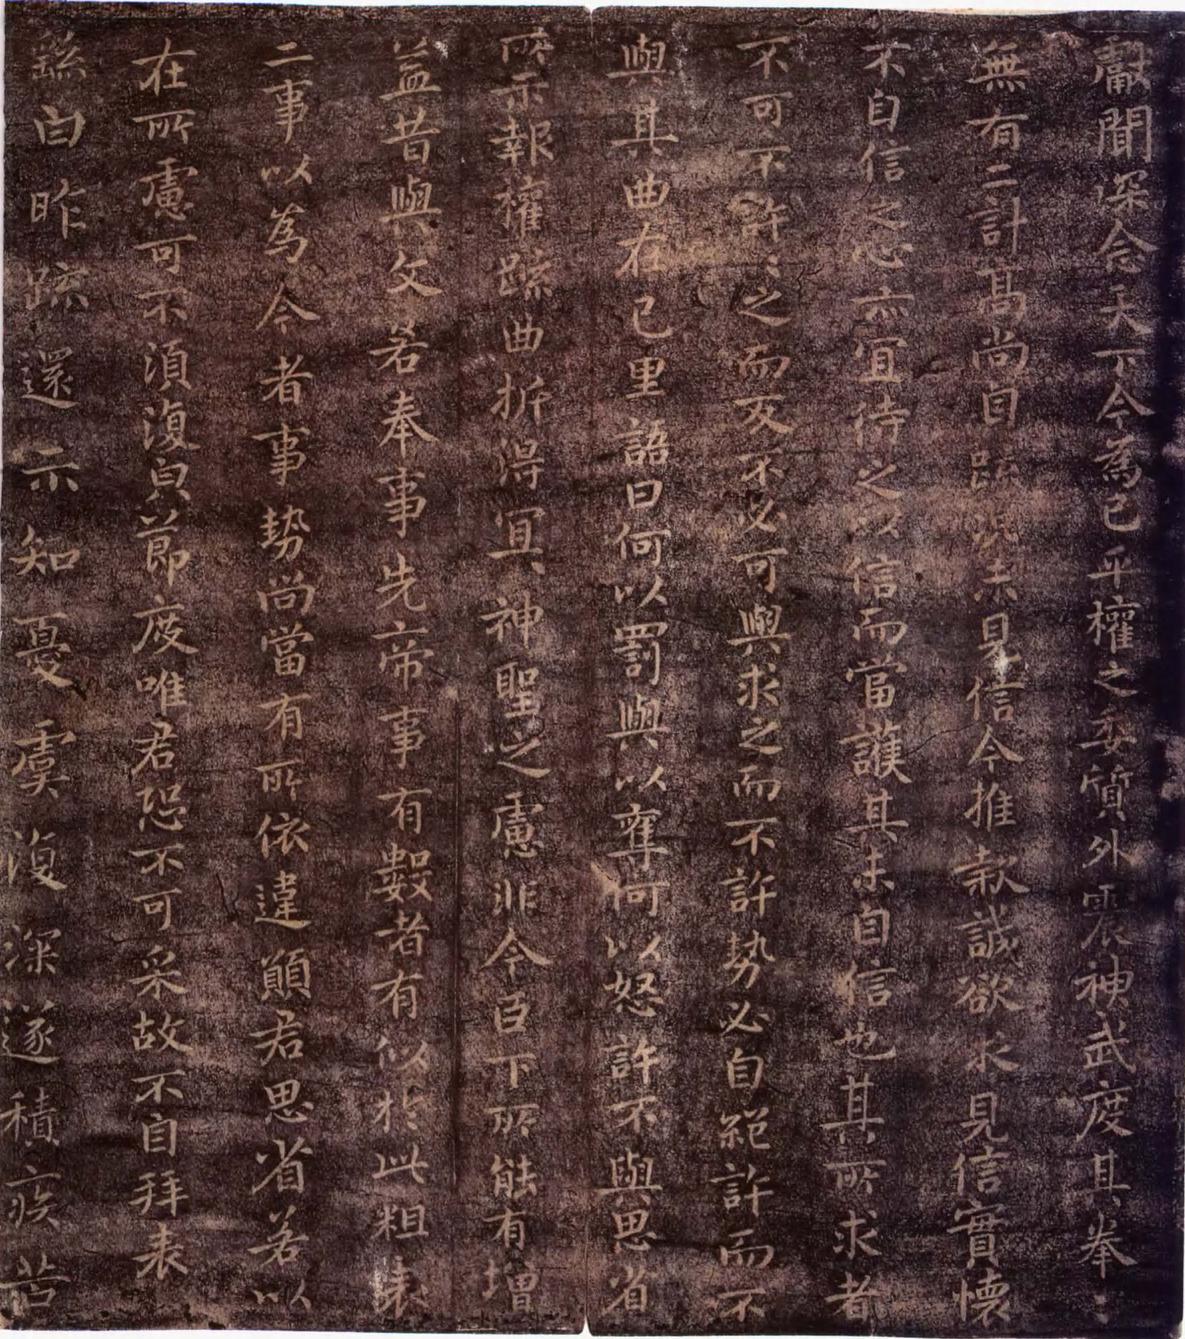 竊聞深念天下今為已平權之委質外震神武度其拳〻
無有二計高尚自疏況未見信今推款誠欲求見信實懷
不自信之心亦宜待之以信而當護其未自信也其所求者
不可不許〻之而反不必可與求之而不許勢必自絕許而不
與其曲在己里語曰何以罰與以奪何以怒許不與思省
所示報權疏曲折得宜神聖之慮非今臣下所能有增
益昔與文若奉事先帝事有數者有似於此粗表
二事以為今者事勢尚當有所依違願君思省若以
在所慮可不須復皃節度唯君恐不可采故不自拜表
繇白昨疏還示知憂虞復深遂積疾苦